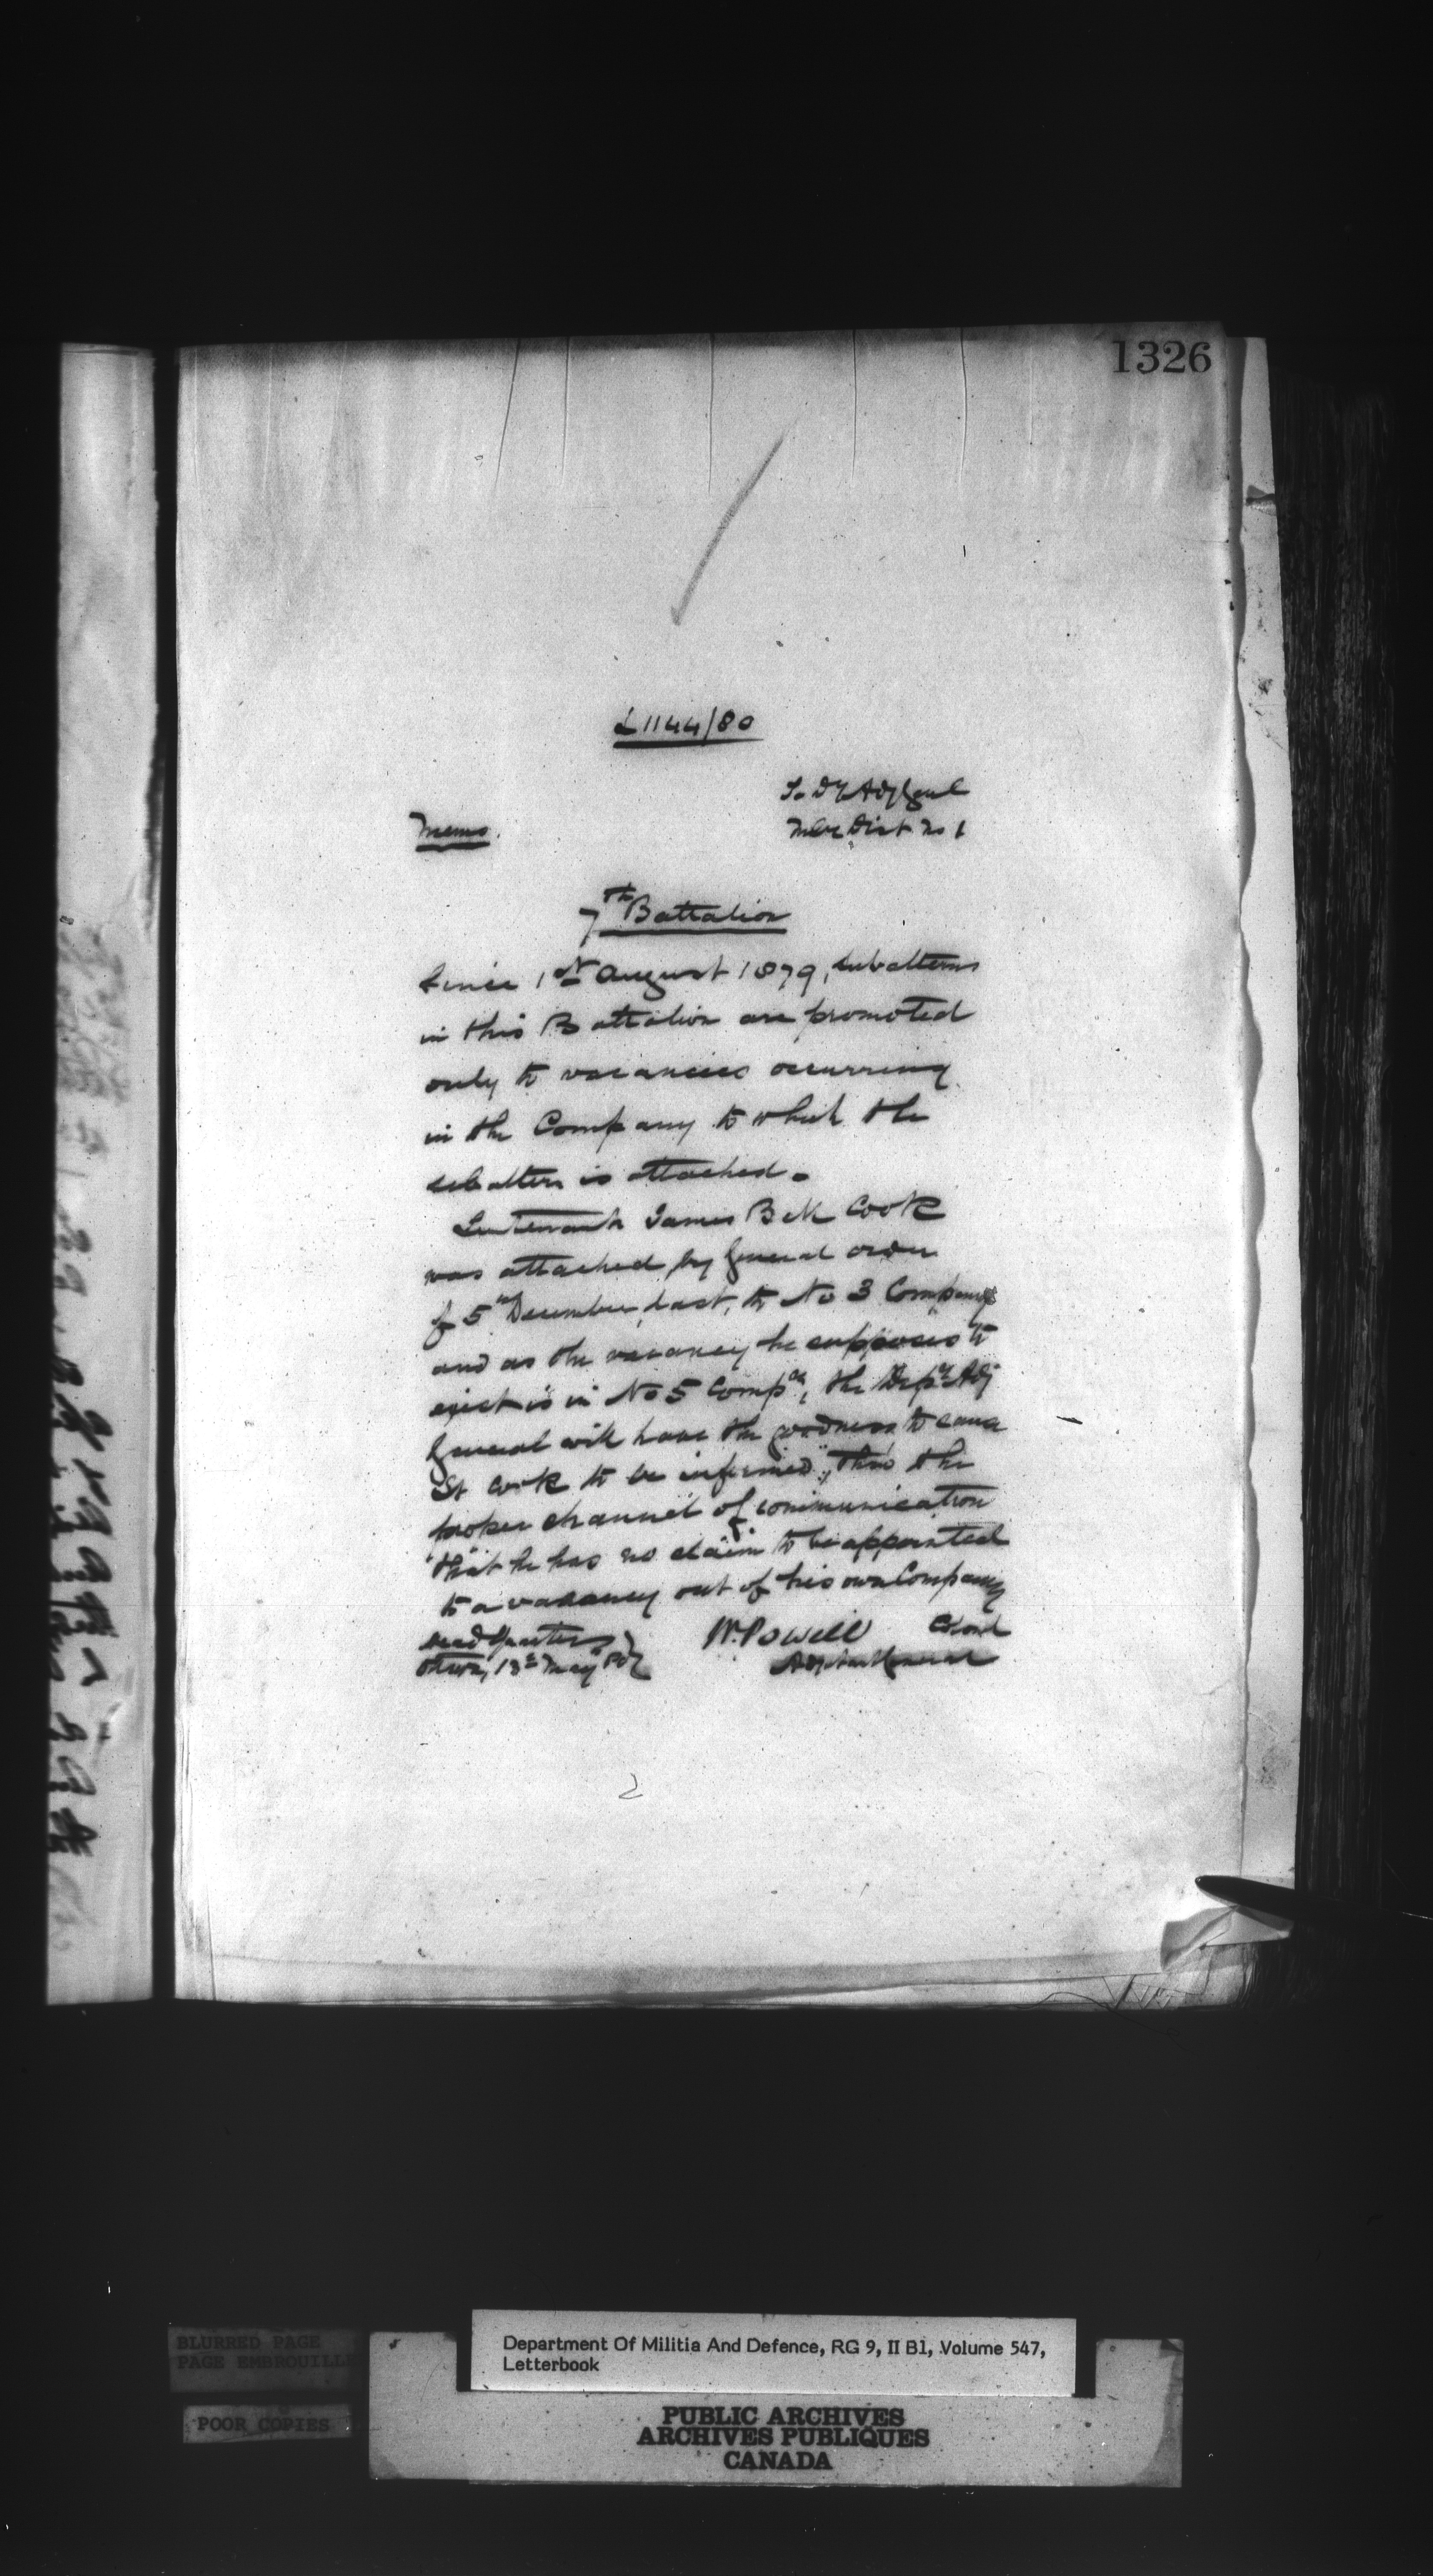 1326
L 1144/80
To Dy Adj Genl
Memo.
Mily Dist No 1
7th Battalion
Since 1st August 1879, subalterns
in this Battalion are promoted
only to vacancies occurring
in the Company to which the
subaltern is attached.
Lieutenant James Bell Cook
was attached by General order
of 5th December last, to No 3 Company
and as the vacancy he supposes to
exist is in No 5 Compy, the Depy Adj
General will have the goodness to cause
Lt Cook to be informed, thro the
proper channel of communication
that he has no claim to be appointed
to a vacancy out of his own Company
Head Quarters
Ottawa, 13th May 80
W. Powell Colonel
Adjutant General
2
BLURRED PAGE
PAGE EMBROUILL
POOR COPIES
Department Of Militia And Defence, RG 9, II B1, Volume 547,
Letterbook
PUBLIC ARCHIVES
ARCHIVES PUBLIQUES
CANADA